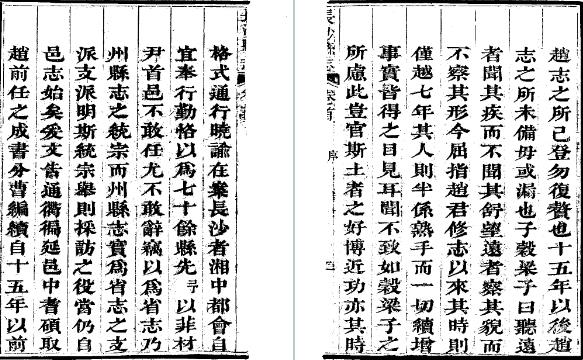 格式通行曉諭在案長沙者湘中都會自
宜奉行勤恪以爲七十餘縣先予以非材
尹首邑不敢任尤不敢辭竊以爲省志乃
州縣志之統宗而州縣志實爲省志之支
派支派明斯統宗舉則採訪之役當仍自
邑志始矣爰文告通衢徧延邑中耆碩取
趙前任之成書分曹編續自十五年以前
趙志之所已登勿復贅也十五年以後趙
志之所未備毋或漏也子穀梁子曰聽遠
者聞其疾而不聞其舒望遠者察其貌而
不察其形今屈指趙君修志以來其時則
僅越七年其人則半係熟手而一切續增
事實皆得之目見耳聞不致如穀梁子之
所慮此豈官斯土者之好博近功亦其時
序